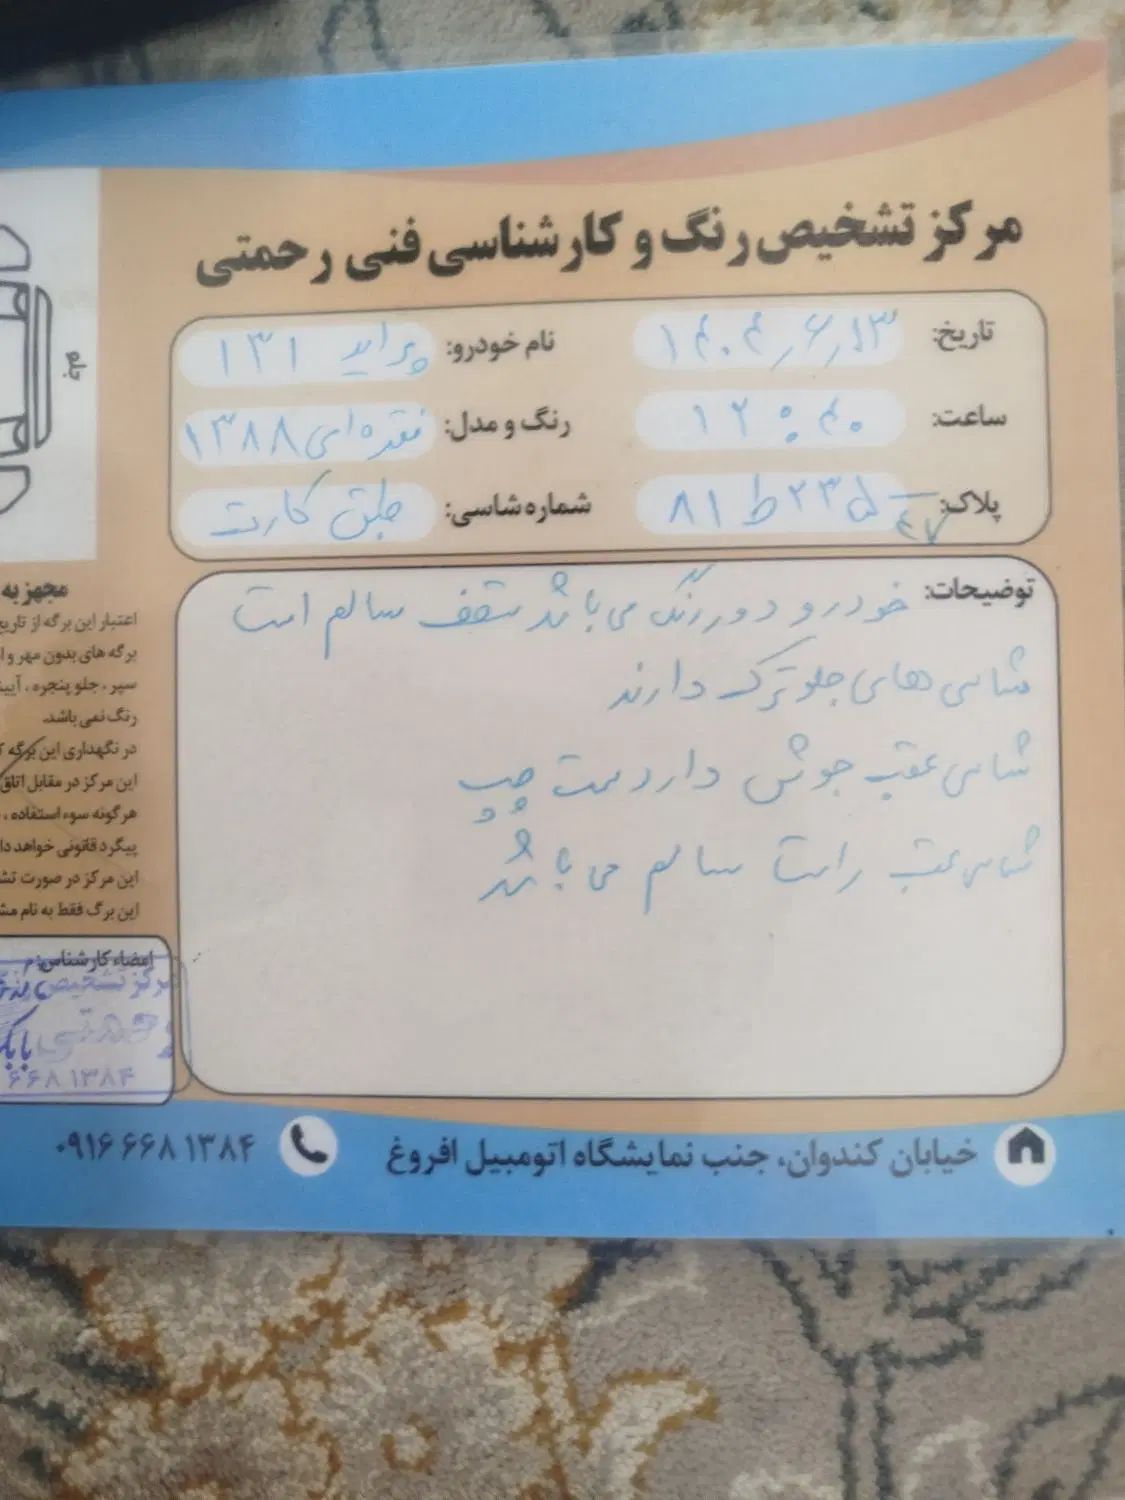 مرکز تشخیص رنگ و کارشناسی فنی رحمتی
تاریخ: ۱۴۰۴٫۶٫۱۳ نام خودرو: پراید ۱۳۱
ساعت: ۱۲:۴۰ رنگ و مدل: نقره‌ای ۱۳۸۸
پلاک: ۸۱ ط ۲۳۵ شماره شاسی: طبق کارت
توضیحات: خودرو دور رنگ می باشد سقف سالم است
شاسی های جلو ترک دارند
شاسی عقب جوش دارد سمت چپ
شاسی عقب راست سالم می باشد
جلو
مجهز به
اعتبار این برگه از تاریخ
برگه های بدون مهر و ا
سپر، جلو پنجره، آیینه
رنگ نمی باشد.
در نگهداری این برگه ک
این مرکز در مقابل اتاق
هرگونه سوء استفاده،
پیگرد قانونی خواهد دا
این مرکز در صورت تش
این برگ فقط به نام مش
امضاء کارشناس:
مرکز تشخیص رنگ
رحمتی
۶۶۸۱۳۸۴
خیابان کندوان، جنب نمایشگاه اتومبیل افروغ
۰۹۱۶ ۶۶۸ ۱۳۸۴